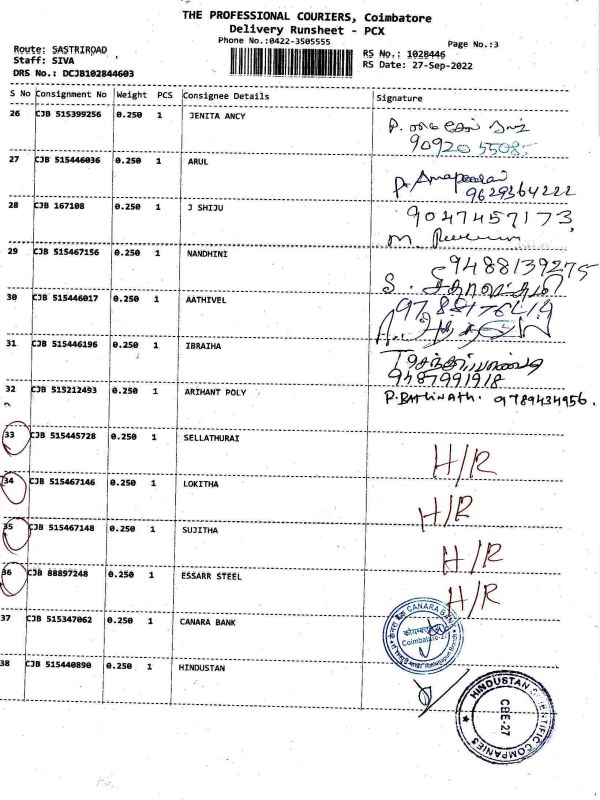 THE PROFESSIONAL COURIERS, Coimbatore
Delivery Runsheet - PCX
Phone No.:0422-3505555
Page No.:3
Route: SASTRIROAD
RS No.: 1028446
Staff: SIVA
RS Date: 27-Sep-2022
DRS No.: DCJB102844603
S No Consignment No Weight PCS Consignee Details Signature
26 CJB 515399256 0.250 1 JENITA ANCY
90920 55085
27 CJB 515446036 0.250 1 ARUL
9629364222
28 CJB 167108 0.250 1 J SHIJU 9047457173
29 CJB 515467156 0.250 1 NANDHINI 9488139275
30 CJB 515446017 0.250 1 AATHIVEL
31 CJB 515446196 0.250 1 IBRAIHA
9487991918
32 CJB 515212493 0.250 1 ARIHANT POLY 9789434956.
33 CJB 515445728 0.250 1 SELLATHURAI H/R
34 CJB 515467146 0.250 1 LOKITHA H/R
35 CJB 515467148 0.250 1 SUJITHA H/R
36 CJB 88897248 0.250 1 ESSARR STEEL H/R
37 CJB 515347062 0.250 1 CANARA BANK
CANARA BANK
Coimbatore-27
38 CJB 515440890 0.250 1 HINDUSTAN
HINDUSTAN SCIENTIFIC COMPANIES
CBE-27